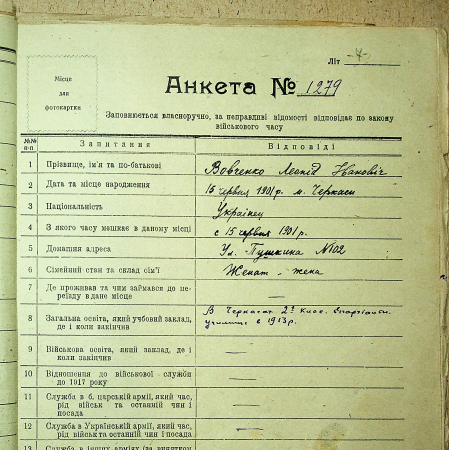 Літ -7-
Місце
для
фотокартки
Анкета № 1279
Заповнюється власноручно, за неправдиві відомості відповідає по закону
військового часу
№№ п-п Запитання Відповіді
1 Прізвище, ім'я та по-батькові Вовченко Леонід Іванович
2 Дата та місце народження 15 червня 1901 р. м. Черкаси
3 Національність Українец
4 З якого часу мешкає в даному місці с 15 червня 1901 р.
5 Домашня адреса Ул. Пушкина №102
6 Сімейний стан та склад сім'ї Женат - жена
7 Де проживав та чим займався до пе-
реїзду в дане місце —
8 Загальна освіта, який учбовий заклад,
де і коли закінчив
В Черкасах 2х клас.
училище в 1913 р.
9 Військова освіта, який заклад, де і
коли закінчив —
10 Відношення до військової служби
до 1917 року —
11 Служба в б. царській армії, який час,
рід військ та останній чин і
посада —
12 Служба в Українській армії, який час,
рід військ та останній чин і посада —
13 Служба в інших арміях (за винятком